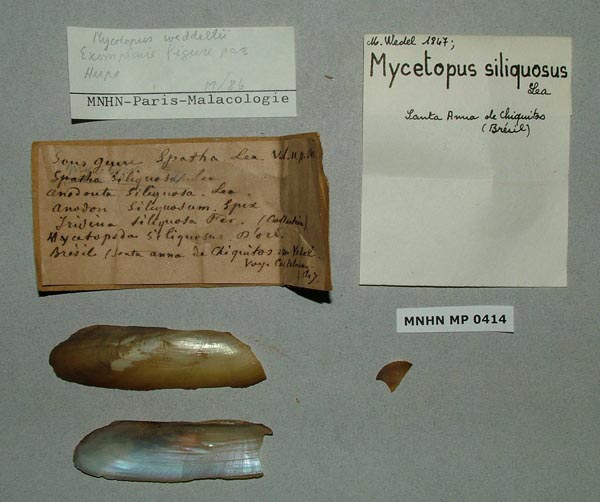 Mycetopus weddellii
Exemplaire figuré par
Hupé
M/86
MNHN-Paris-Malacologie
M. Wedel 1847;
Mycetopus siliquosus
Lea
Santa Anna de Chiquitos
(Brésil)
Sous genre Spatha Lea. Vol. II p.
Spatha siliquosa Lea
anodonta siliquosa. Lea.
anodon siliquosum. Spix
Iridina siliquosa Fer. (Collection)
Mycetopoda siliquosus. D'orb.
Brésil (Santa anna de Chiquitos
Voy. Castelnau
1847
MNHN MP 0414